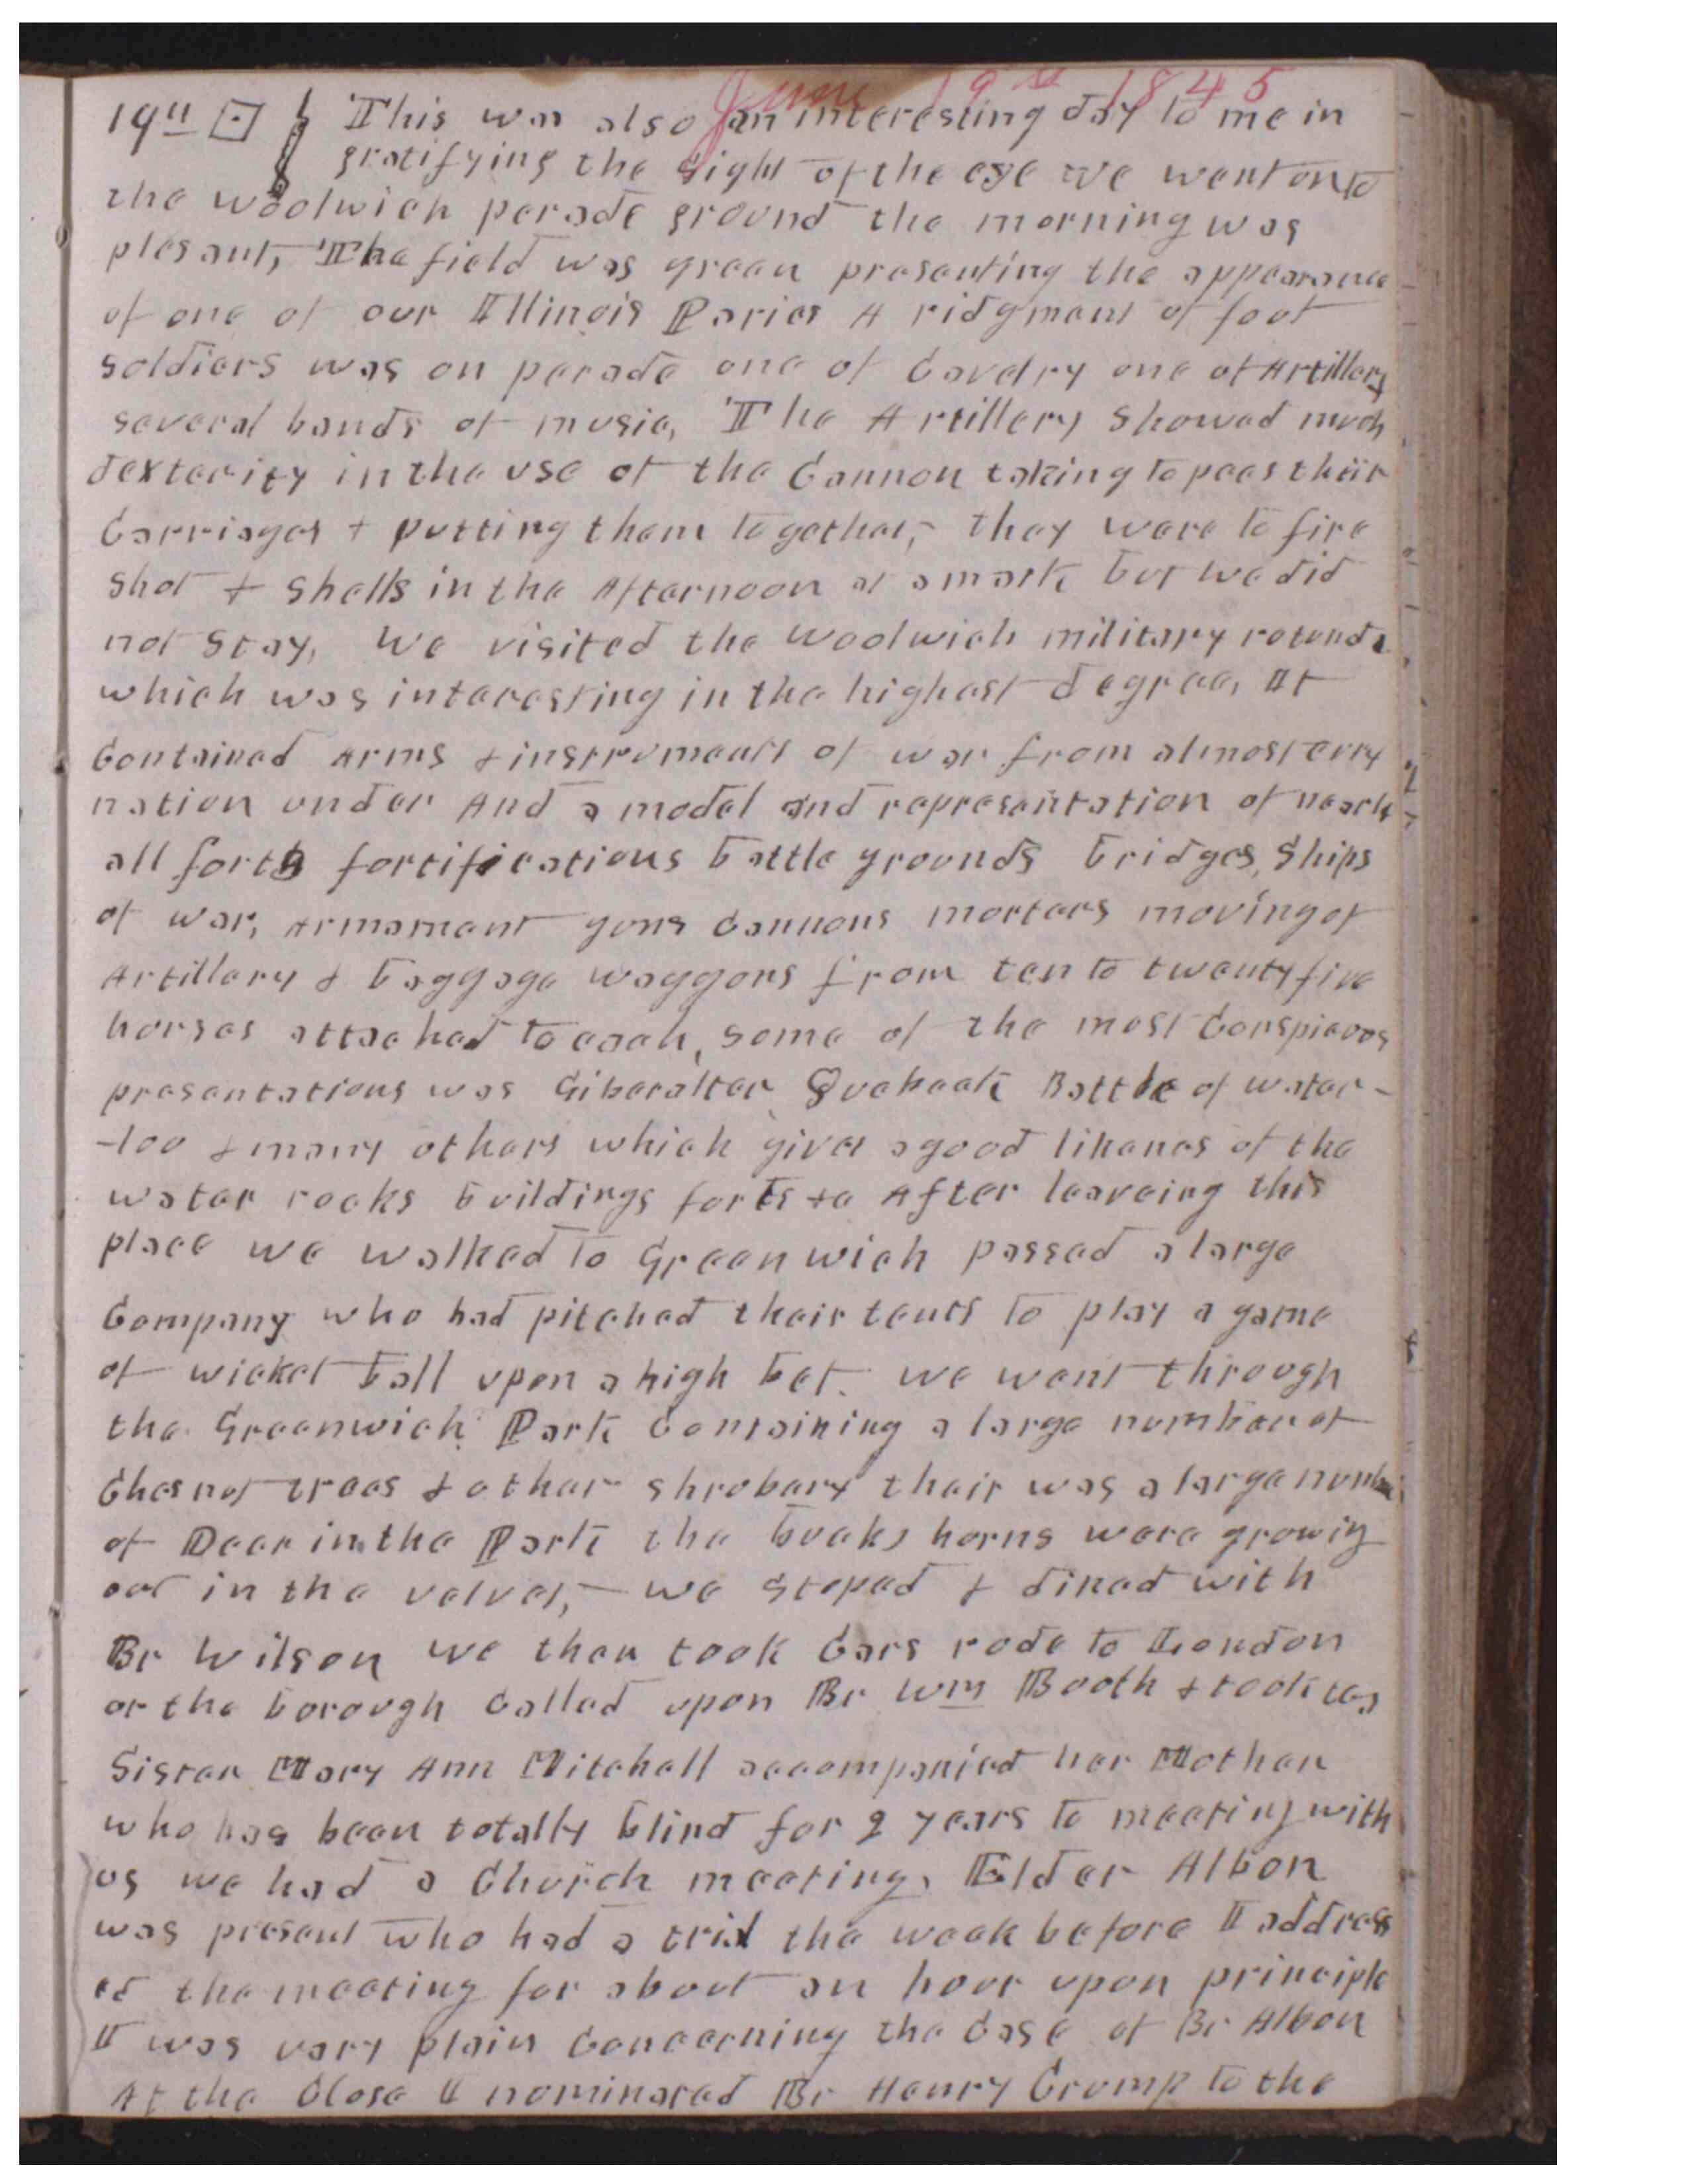 June 19th 1845
19th ⊡ This was also an interesting day to me in
gratifying the sight of the eye we went onto
the woolwich perade ground the morning was
plesant, The field was green presenting the appearance
of one of our Illinois Paries A ridgment of foot
soldiers was on perade one of Cavelry one of Artillery
several bands of music, The Artillery Showed much
dexterity in the use of the Cannon taking to pees their
Carriages & putting them together, they were to fire
shot & shells in the Afternoon at a mark but we did
not Stay, We visited the woolwich military rotunda
which was interesting in the highest degree, It
Contained Arms & instruments of war from almost evry
nation under And a model and representation of nearly
all forts fortifications battle grounds bridges, Ships
of war, Armamant guns Cannons mortars moving of
Artillery & baggage waggons from ten to twenty five
horses attached to each, some of the most Conspicuos
presentations was Giberalter, Quebeck Battle of water-
-loo & many others which gives a good likenes of the
water rocks buildings forts &c After leaveing this
place we walked to Greenwich passed a large
Company who had pitched their tents to play a game
of wicket ball upon a high bet. we went through
the Greenwich Park Containing a large number of
Chesnut trees & other shrubery their was a large number
of Deer in the Park the bucks horns were growig
out in the velvet, we stoped & dined with
Br Wilson we then took Cars rode to London
or the borough Called upon Br Wm Booth & took tea
Sister Mary Ann Mitchell accompanied her Mother
who has been totally blind for 2 years to meeting with
us we had a Church meeting, Elder Albon
was present who had a trial the week before I address
ed the meeting for about an hour upon principle
I was very plain Concerning the Case of Br Albon
At the Close I nominated Br Henry Crump to the